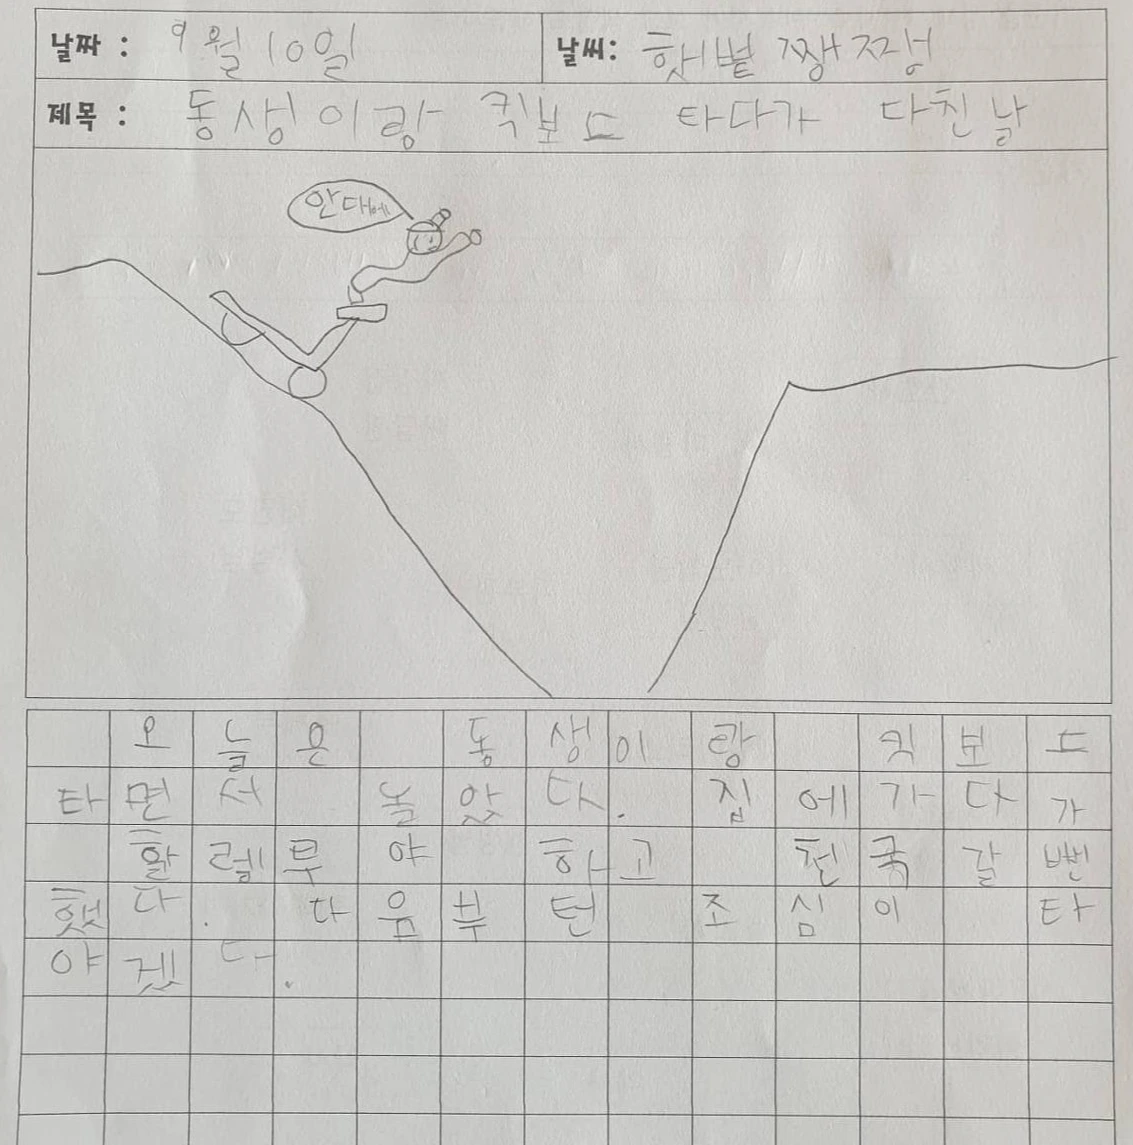 날짜 : 9월 10일
날씨: 햇볕 쨍쨍
제목 : 동생이랑 킥보드 타다가 다친날
안대에
오늘은 동생이랑 킥보드
타면서 놀았다. 집에가다가
활렐루야 하고 천국 갈뻔
했다. 다음부턴 조심이 타
야겠다.